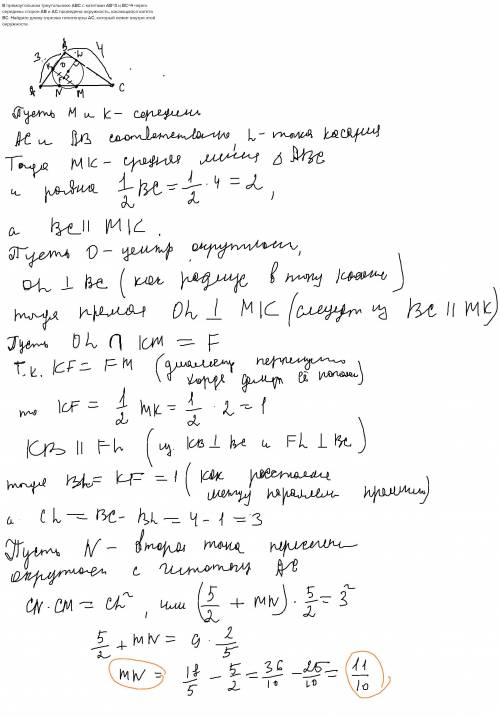 В прямоугольном треугольнике ABC с катетами AB=3 и BC=4 через
середины сторон AB и AC проведена окружность, касающаяся катета
BC. Найдите длину отрезка гипотенузы AC, который лежит внутри этой
окружности.
3 B L 4
K O
F
A N M C
Пусть M и K - середины
AC и AB соответственно L - точка касания
Тогда MK - средняя линия △ ABC
и равна 1/2 BC = 1/2 · 4 = 2,
а BC || MK.
Пусть O - центр окружности,
OL ⊥ BC (как радиус в точку касания)
тогда прямая OL ⊥ MK (следует из BC || MK)
Пусть OL ∩ KM = F
Т.к. KF = FM (диаметр перпендикулярно
хорде делит её пополам)
то KF = 1/2 MK = 1/2 · 2 = 1
KB || FL (из KB ⊥ BC и FL ⊥ BC)
тогда BL = KF = 1 (как расстояние
между параллельн прямыми)
а CL = BC - BL = 4 - 1 = 3
Пусть N - вторая точка пересечен
окружности с гипотенузой AC
CN · CM = CL², или (5/2 + MN) · 5/2 = 3²
5/2 + MN = 9 · 2/5
MN = 18/5 - 5/2 = 36/10 - 25/10 = 11/10